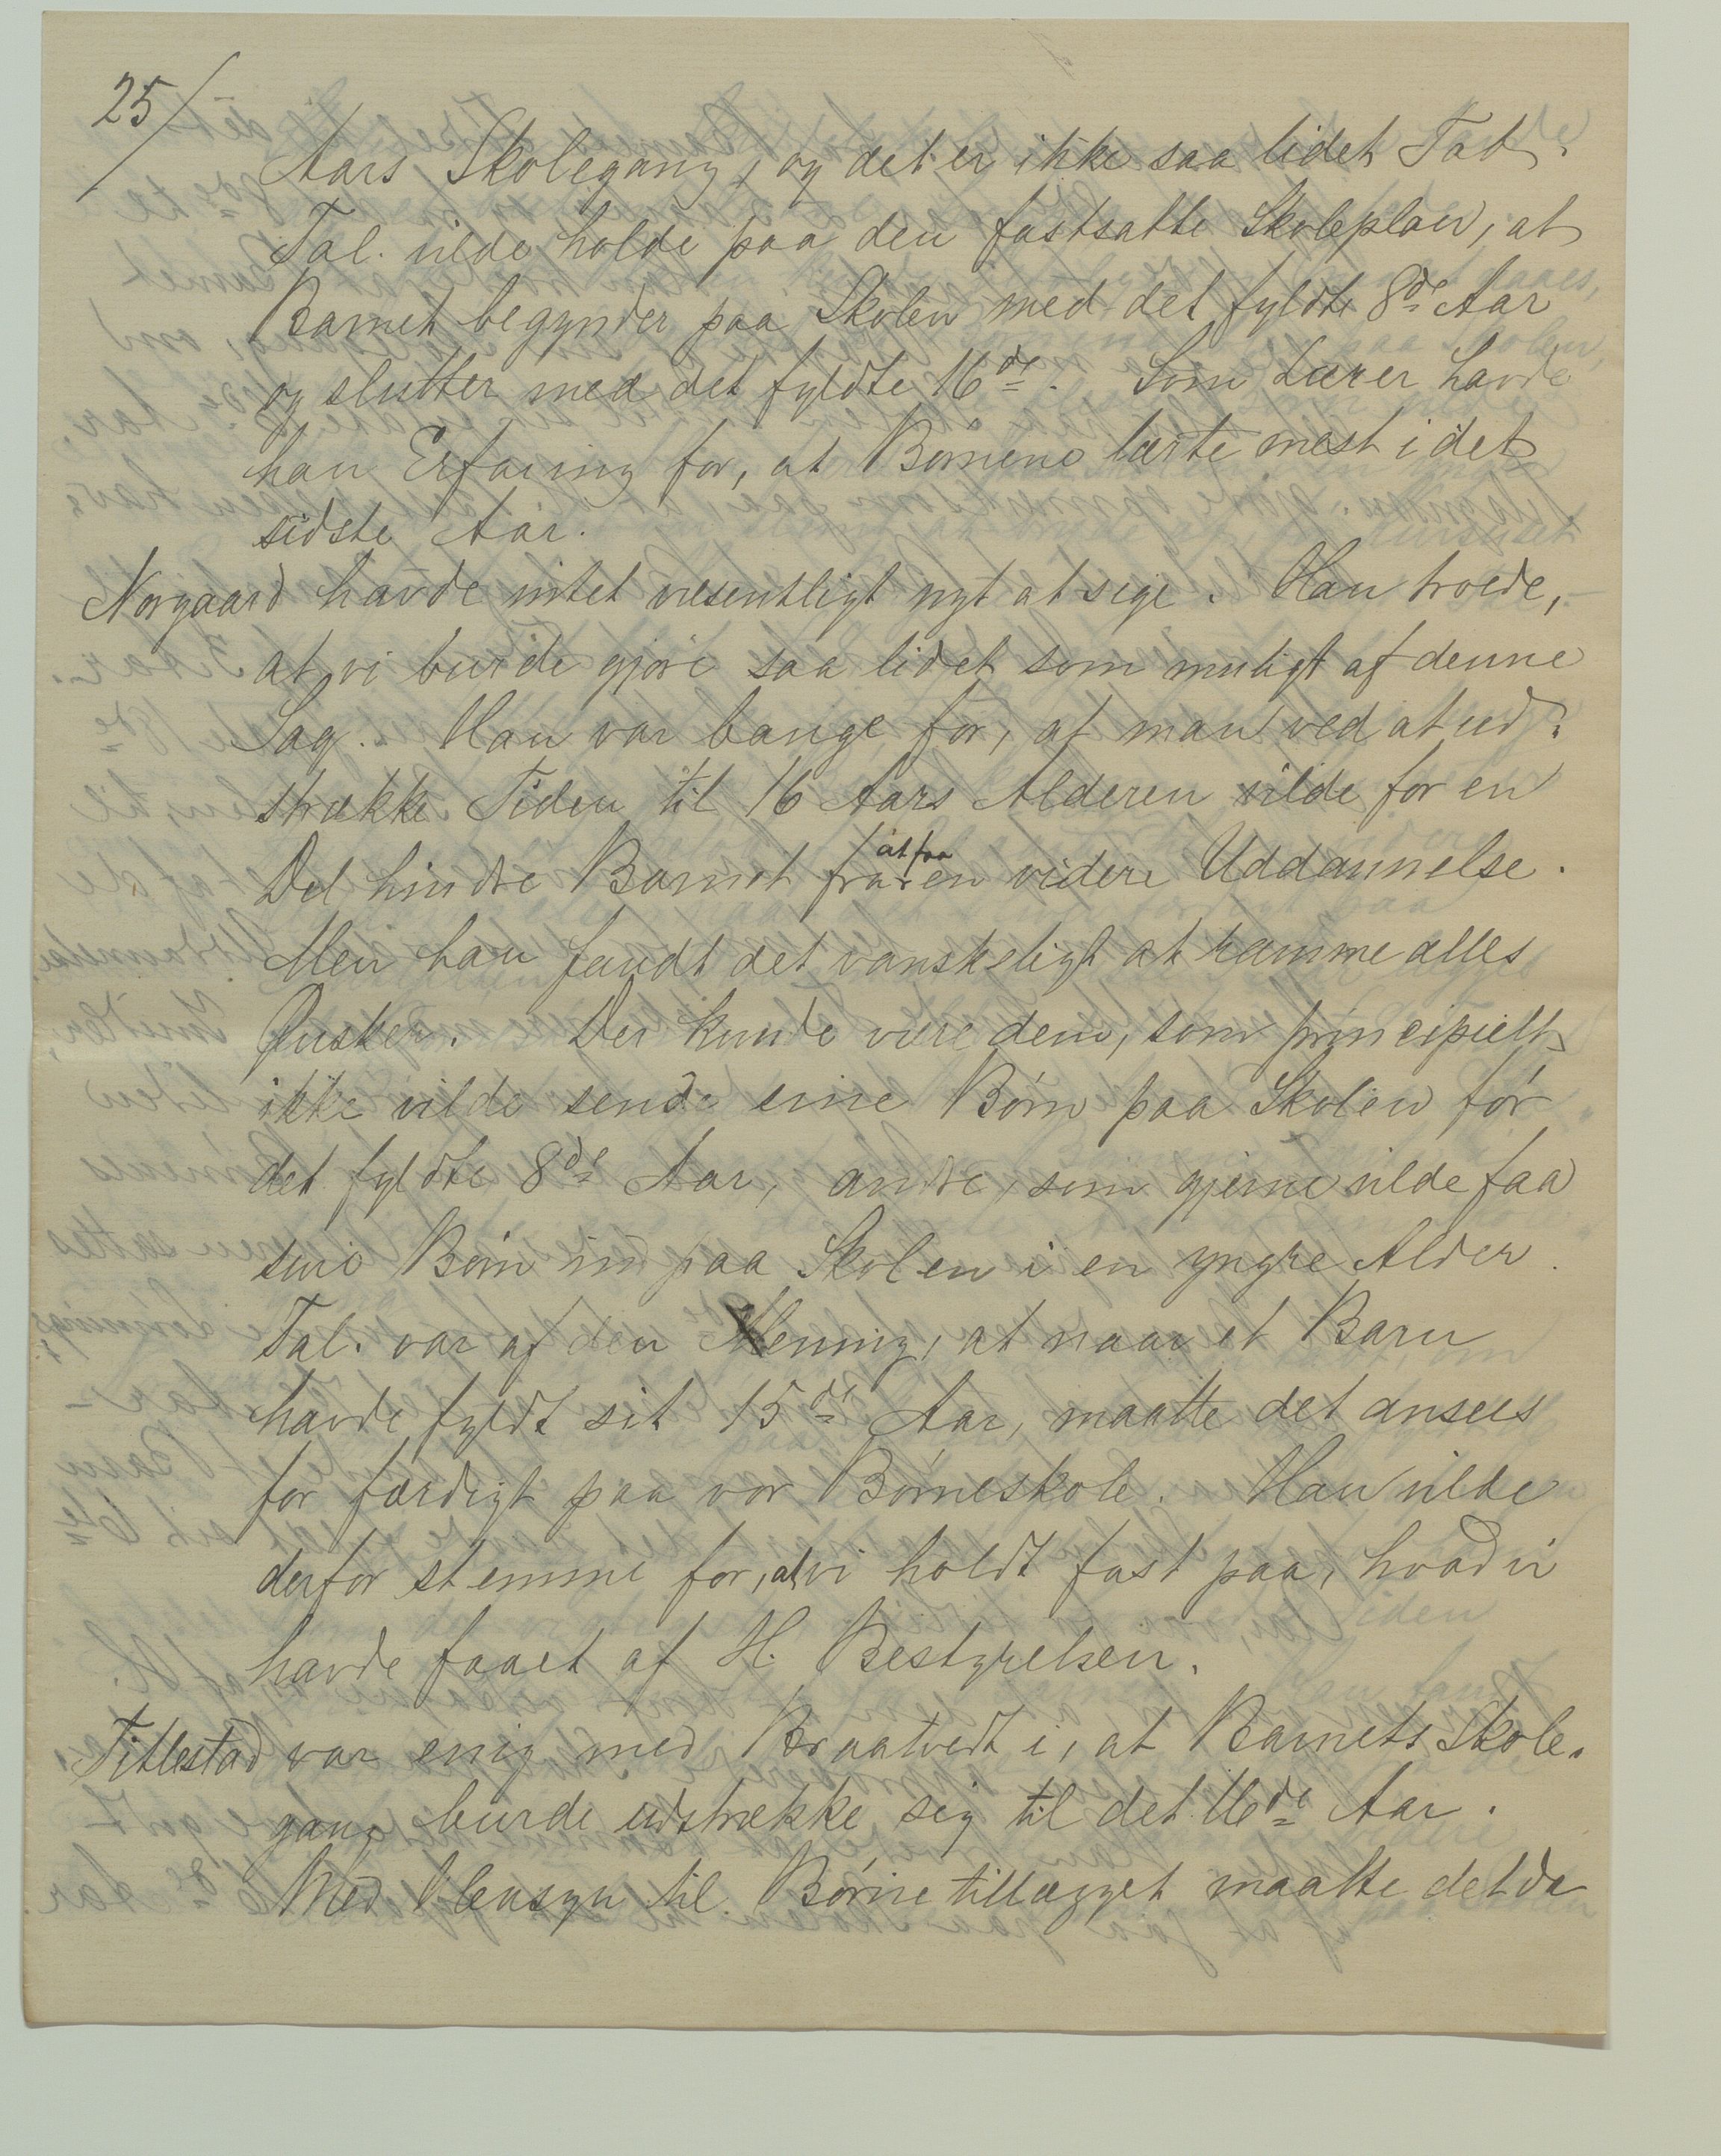 25/
Aars Skolegang, og det er ikke saa lidet Tab.
Tal. vilde holde paa den fastsatte Skoleplan, at
Barnet begynder paa Skolen med det fyldte 8de Aar
og slutter med det fyldte 16de. Som Lærer havde
han Erfaring for, at Børnene lærte mest i det
sidste Aar.
Norgaard havde intet væsentligt nyt at sige. Han troede,
at vi burde gjøre saa lidet som muligt af denne
Sag. Han var bange for, at man ved at ud-
strække Tiden til 16 Aars Alderen vilde for en
Del hindre Barnet fra at faa en videre Uddannelse.
Men han fandt det vanskeligt at ramme alles
Ønsker. Der kunde være dem, som principielt
ikke vilde sende sine Børn paa Skolen før
det fyldte 8de Aar, andre, som gjerne vilde faa
sine Børn ind paa Skolen i en yngre Alder.
Tal. var af den Mening, at naar et Barn
havde fyldt sit 15de Aar, maatte det ansees
for færdigt paa vor Børneskole. Han vilde
derfor stemme for, at vi holdt fast paa, hvad vi
havde faaet af H. Bestyrelsen.
Titlestad var enig med Braatvedt i, at Barnets Skole-
gang burde udstrække sig til det 16de Aar.
Med Hensyn til Børnetillægget maatte det da